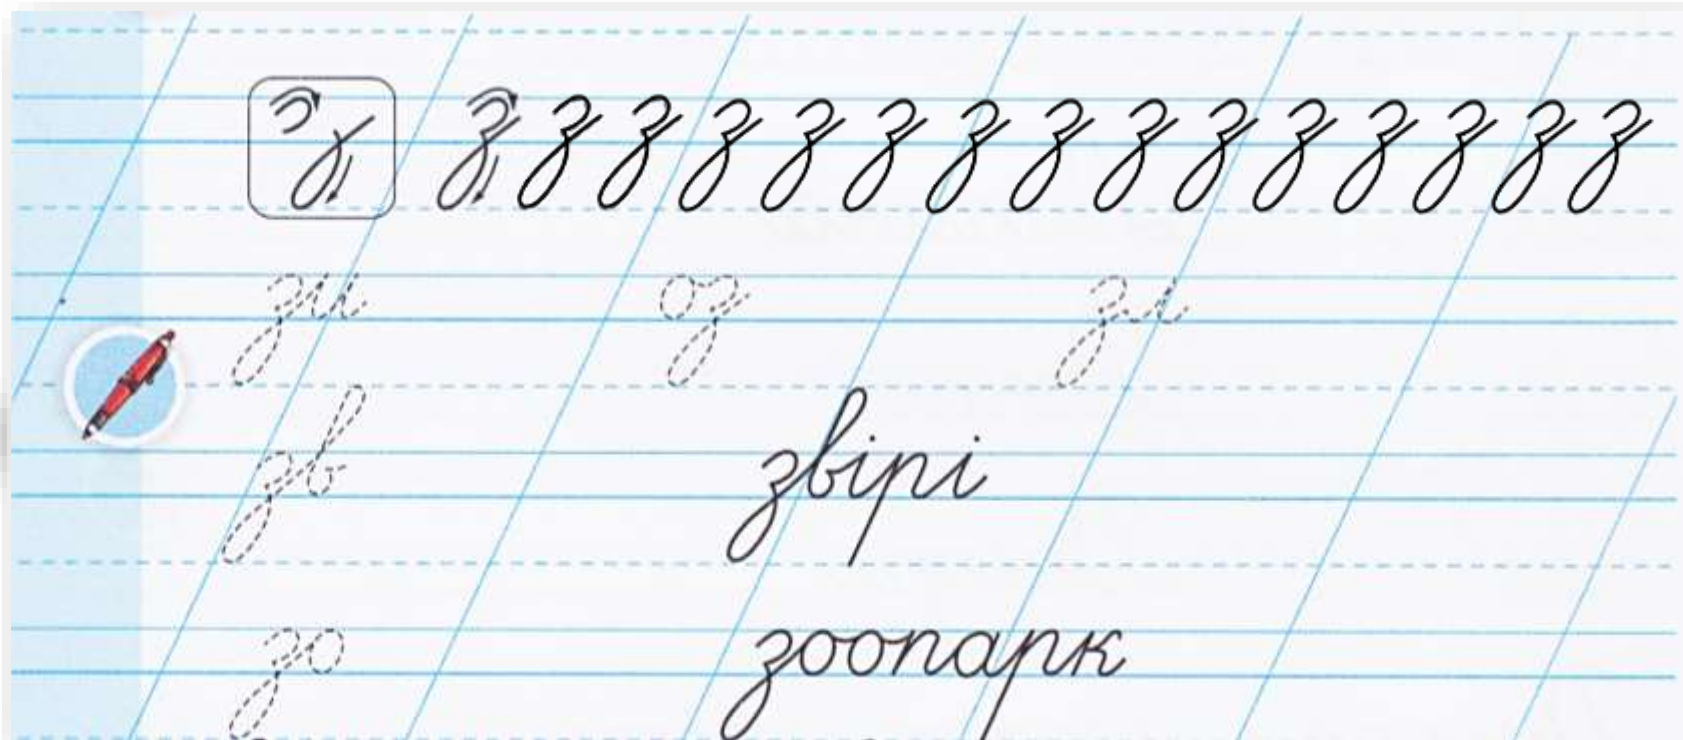 з з з з з з з з з з з з з з з
зи оз зл
зв звірі
зо зоопарк